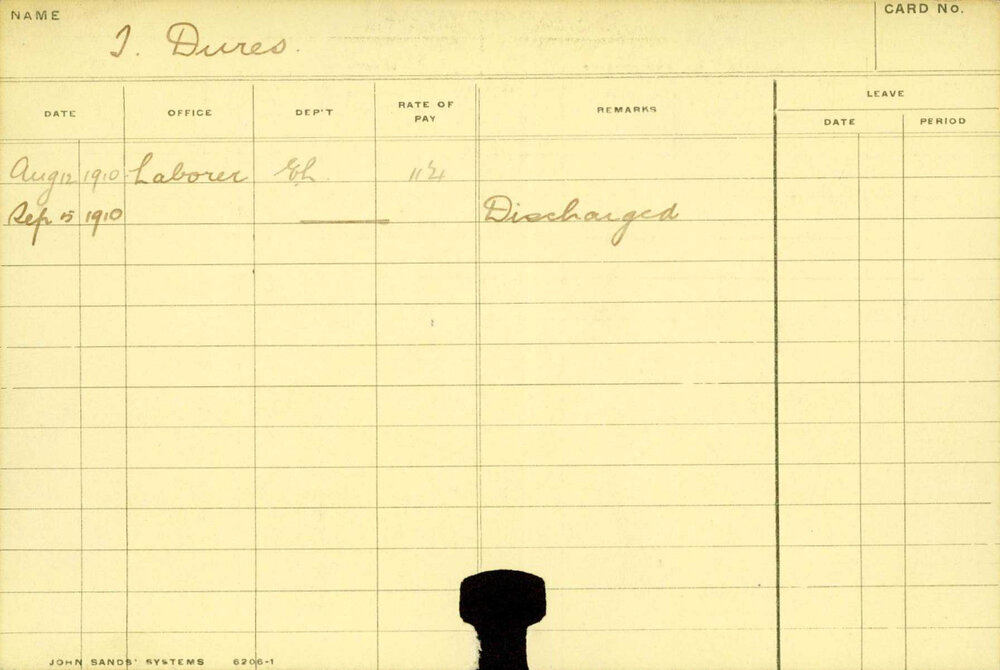 NAME
CARD No.
J. Dures.
DATE OFFICE DEP'T RATE OF PAY REMARKS LEAVE
DATE PERIOD
Aug 12 1910 Laborer
Sep 15 1910 Discharged
JOHN SANDS' SYSTEMS 6206-1